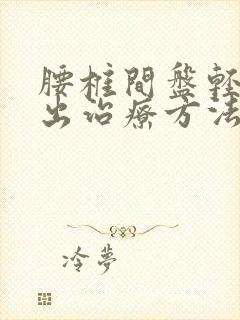 腰柱間盤輕
出治療方法
冷夢